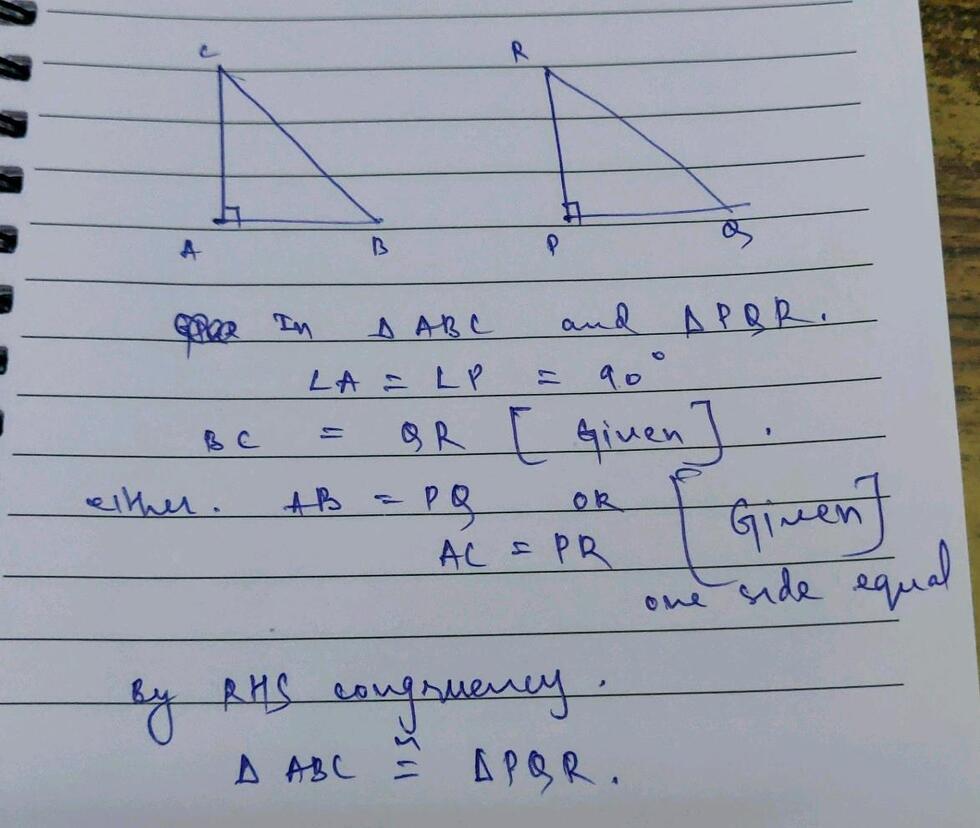 C R
A B P Q
In Δ ABC and Δ PQR.
∠A = ∠P = 90°
BC = QR [Given].
either. AB = PQ OR [Given]
AC = PR
one side equal
By RHS congruency.
Δ ABC ≅ ΔPQR.